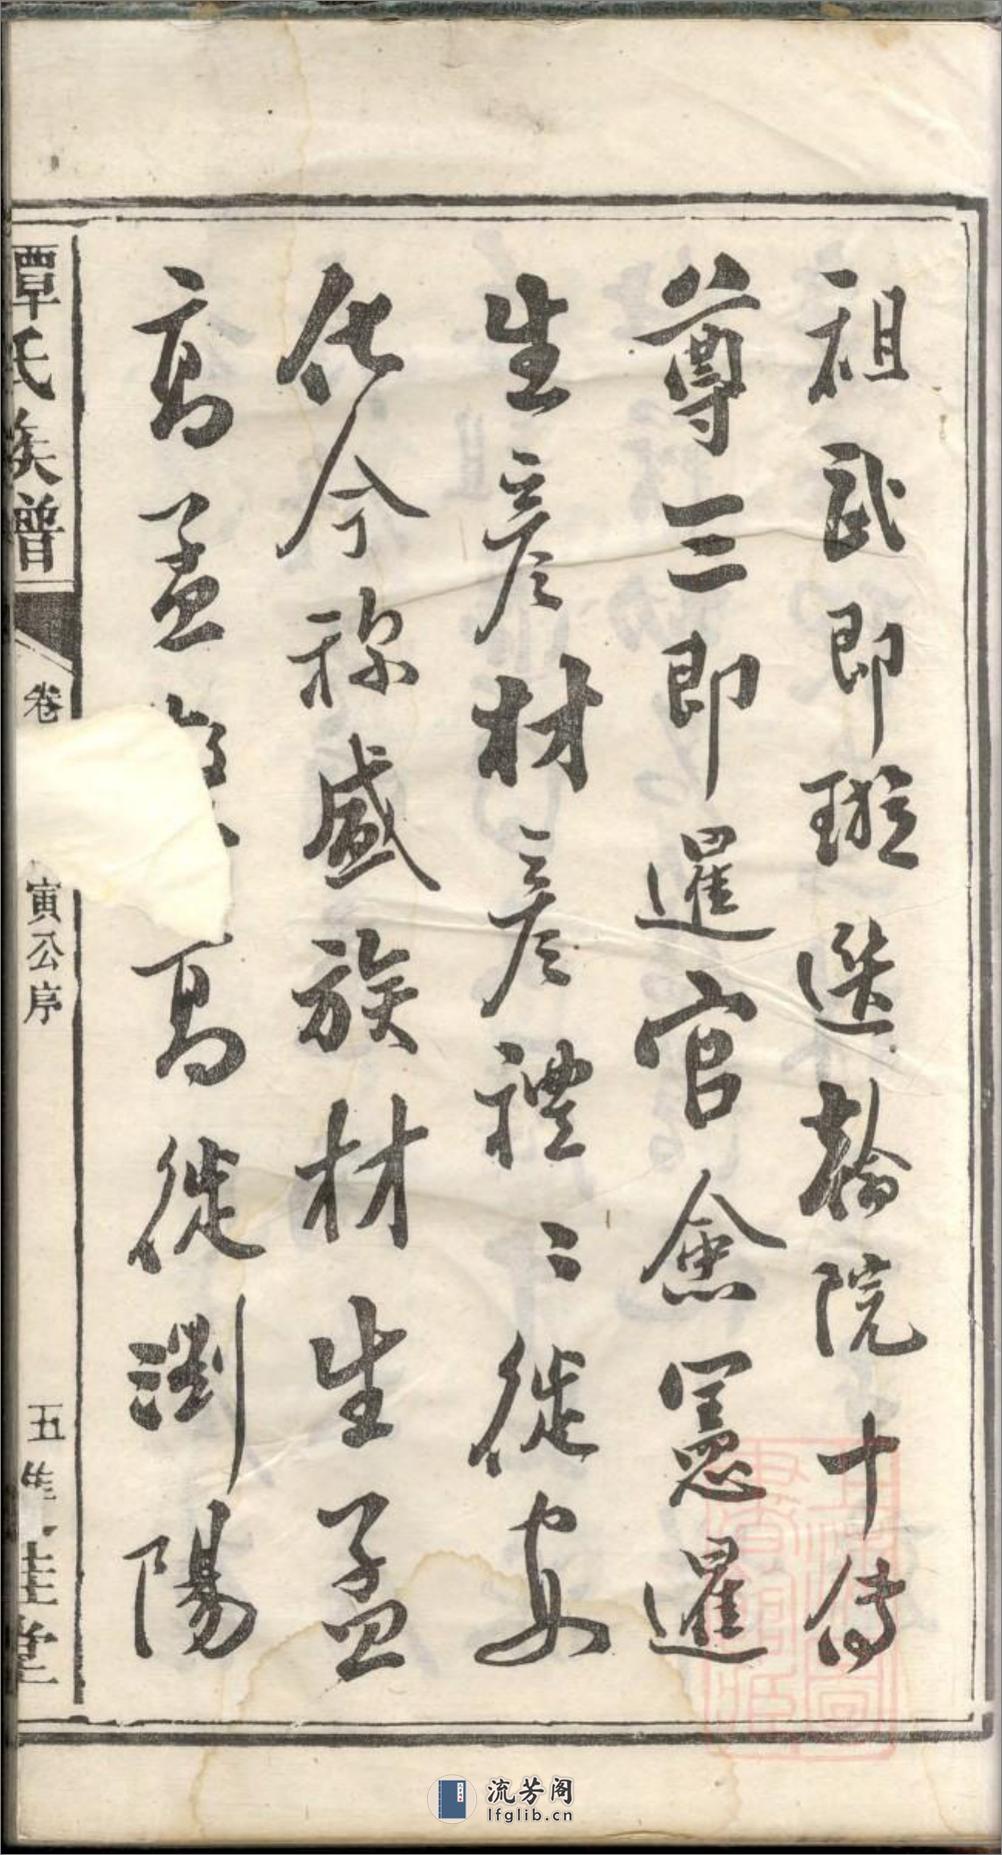 祖武即璇選翰院十傳
尊三即暹官僉憲暹
生彦材彦禮〻徙安
化今称盛族材生孟
高孟
高徙瀏陽
譚氏族譜
卷
寅公序
五
桂堂
流芳阁
lfglib.cn